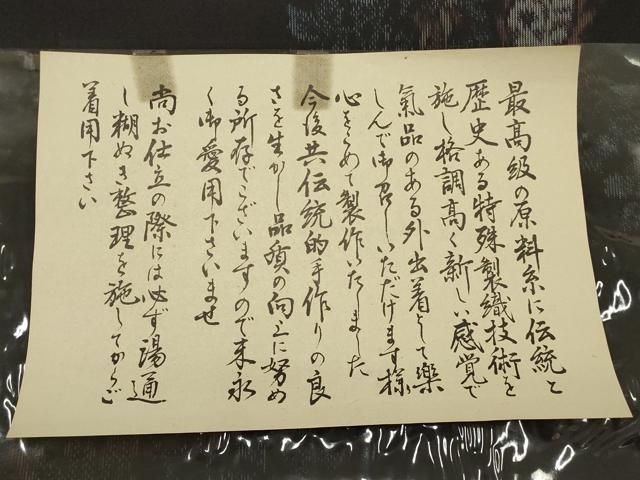 最高級の原料糸に伝統と
歴史ある特殊製織技術を
施し格調高く新しい感覚で
氣品のある外出着として楽
しんで御召しいただけます様
心をこめて製作いたしました
今後共伝統的手作りの良
さを生かし品質の向上に努め
る所存でございますので末永
く御愛用下さいませ
尚お仕立の際には必ず湯通
し糊ぬき整理を施してからご
着用下さい